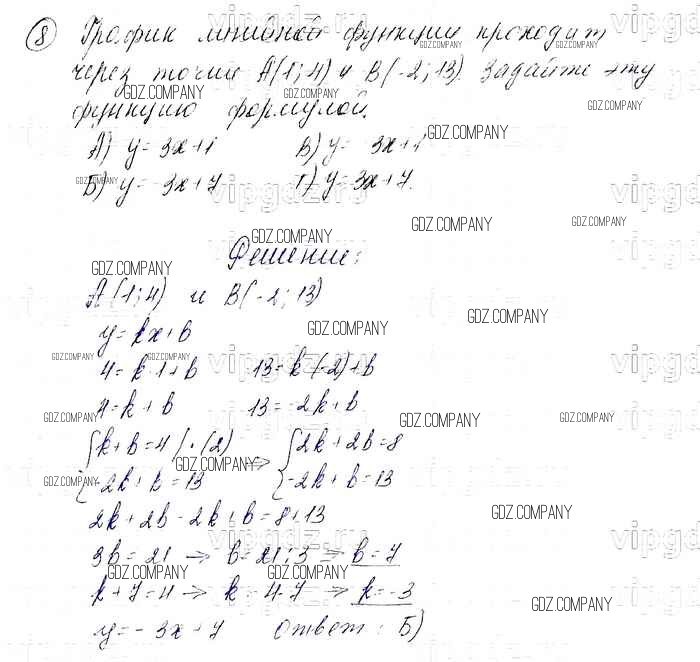 8 График линейной функции проходит
через точки A(1;4) и B(-2;13). Задайте эту
функцию формулой.
А) y = 3x+1 В) y = 3x+1
Б) y = -3x+7 Г) y = 3x+7.
Решение:
A(1;4) и B(-2;13)
y = kx+b
4 = k·1+b 13 = k·(-2)+b
4 = k+b 13 = -2k+b
{k+b=4 | ·(2) => {2k+2b=8
{-2k+b=13 {-2k+b=13
2k+2b-2k+b=8+13
3b=21 → b=21:3 → b=7
k+7=4 → k=4-7 → k=-3
y=-3x+7 Ответ: Б)
GDZ.COMPANY
vipgdz.ru